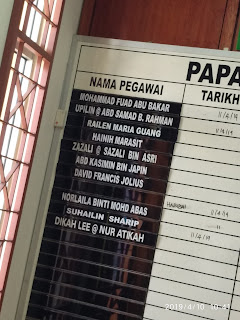 PAPA
NAMA PEGAWAI
TARIKH
MOHAMMAD FUAD ABU BAKAR
11/4/19
UPILIN @ ABD SAMAD B. RAHMAN
RAILEN MARIA GUANG
11/4/19
HAINIH MARASIT
ZAZALI @ SAZALI BIN ASRI
ABD KASIMIN BIN JAPIN
DAVID FRANCIS JOLIUS
NORLAILA BINTI MOHD ABAS
SUHAILIN SHARIP
DIKAH LEE @ NUR ATIKAH
11/4/19
2019/4/10